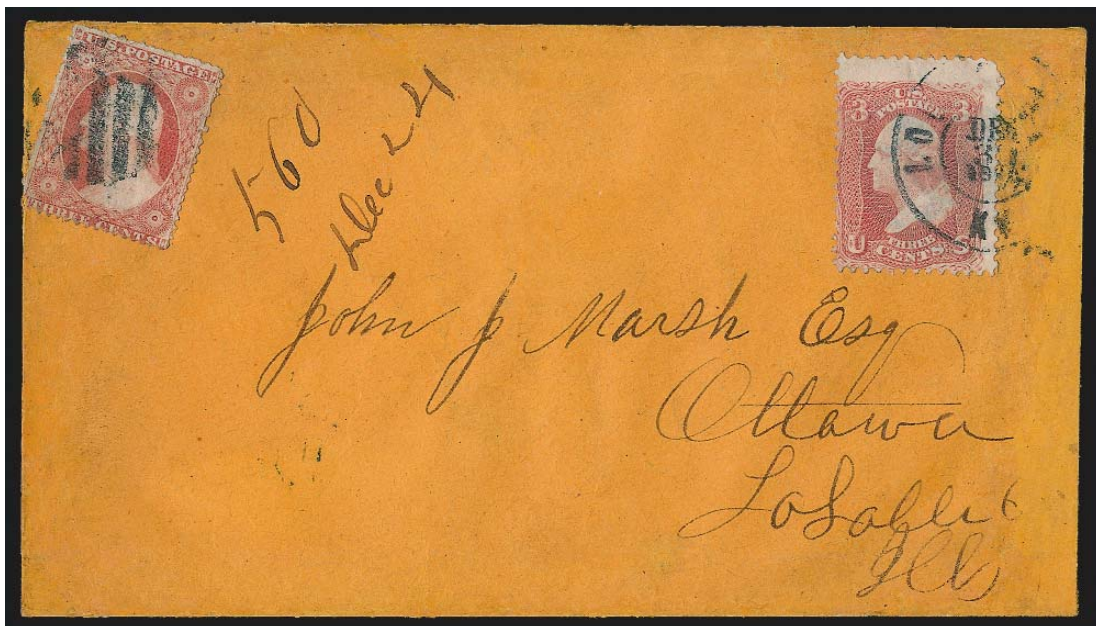 U.S. POSTAGE
CENTS
560
Dec 24
U.S.
POSTAGE
3 3
THREE
U CENTS S
LO
DE
John J Marsh Esq
Ottawa
LaSalle C
Ills